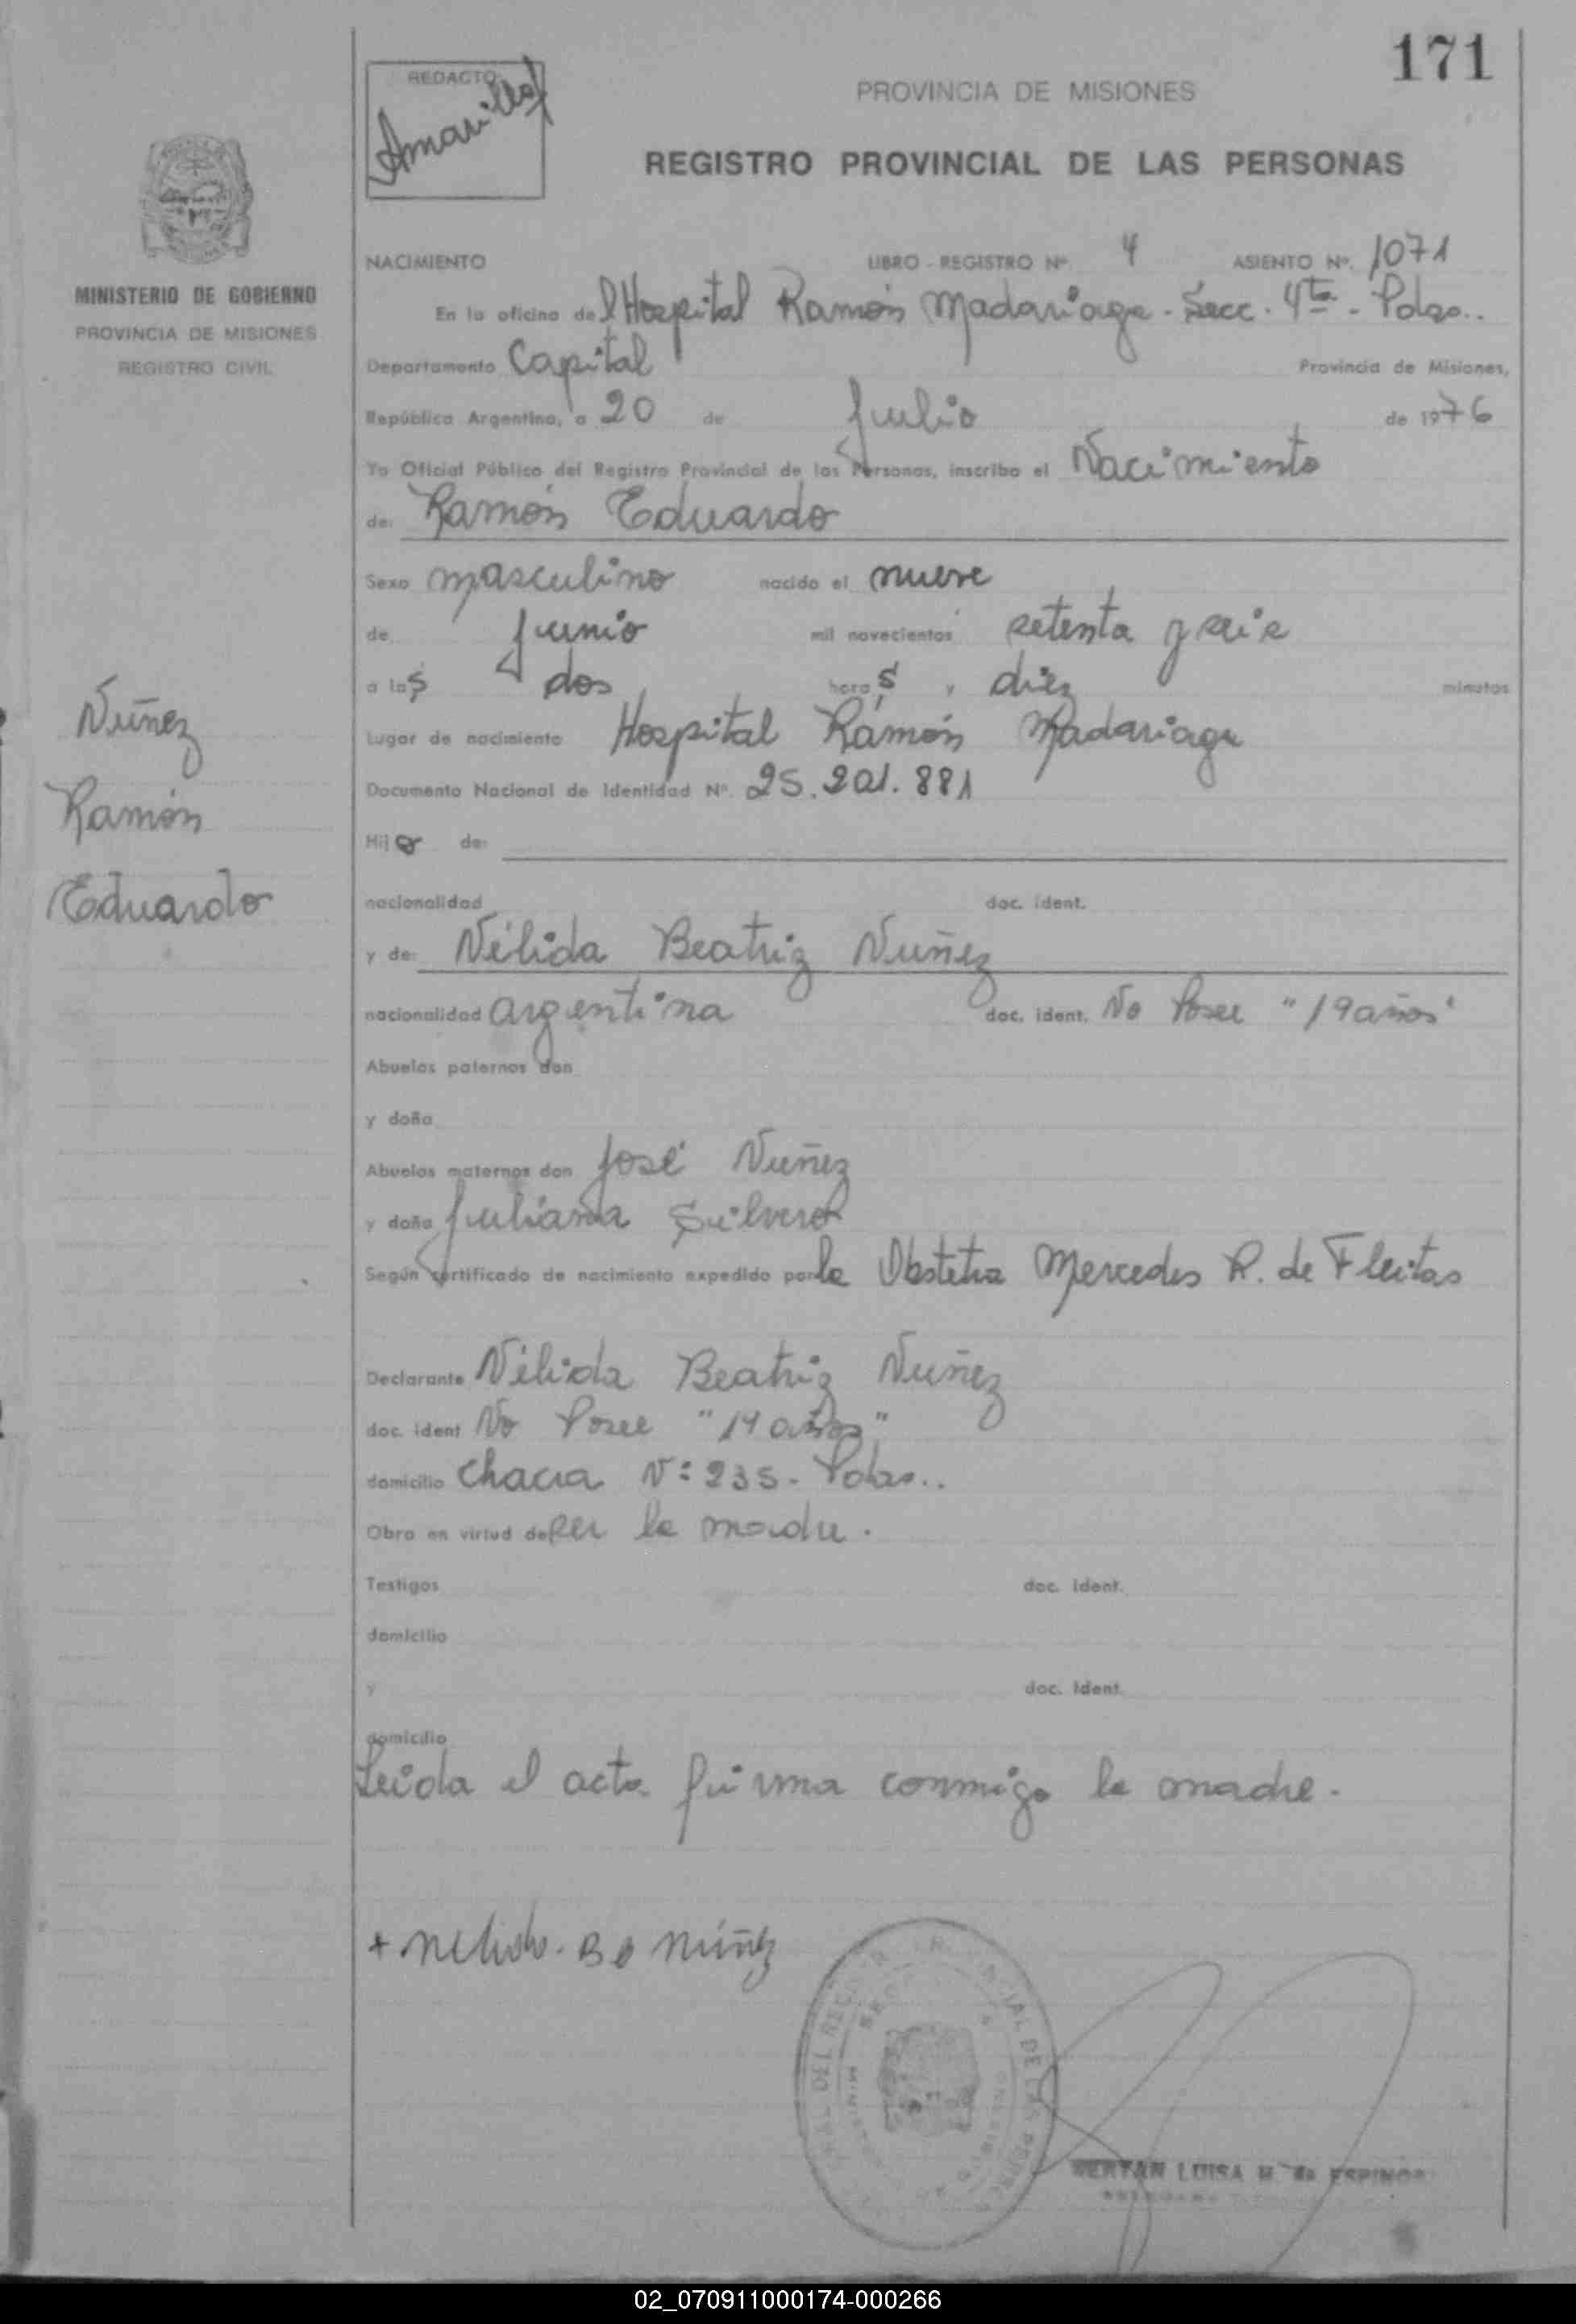 171
REDACTO
Amarilla
PROVINCIA DE MISIONES
REGISTRO PROVINCIAL DE LAS PERSONAS
MINISTERIO DE GOBIERNO
PROVINCIA DE MISIONES
REGISTRO CIVIL
NACIMIENTO LIBRO - REGISTRO Nº 4 ASIENTO Nº. 1071
En la oficina del Hospital Ramón Madariaga - Secc. 4ta - Pdas..
Departamento Capital Provincia de Misiones,
República Argentina, a 20 de Julio de 1976
Yo Oficial Público del Registro Provincial de las Personas, inscribo el Nacimiento
de: Ramón Eduardo
Sexo masculino nacido el nueve
de Junio mil novecientos setenta y seis
a las dos horas y diez minutos
Lugar de nacimiento Hospital Ramón Madariaga
Documento Nacional de Identidad Nº. 25.201.881
Hijo de:
nacionalidad doc. ident.
y de: Nélida Beatriz Nuñez
nacionalidad argentina doc. ident. No Posee "19 años"
Abuelos paternos don
y doña
Abuelos maternos don José Nuñez
y doña Juliana Silvero
Según certificado de nacimiento expedido por la Obstetra Mercedes R. de Fleitas
Declarante Nélida Beatriz Nuñez
doc. ident No Posee "19 años"
domicilio Chacra Nº 235 - Pdas..
Obra en virtud de ser la madre.
Testigos doc. ident.
domicilio
y doc. ident.
domicilio
Leida el acta firma conmigo la madre.
Nuñez
Ramón
Eduardo
+ Nelida. Be Núñez
LUISA M. de ESPINO
02_070911000174-000266